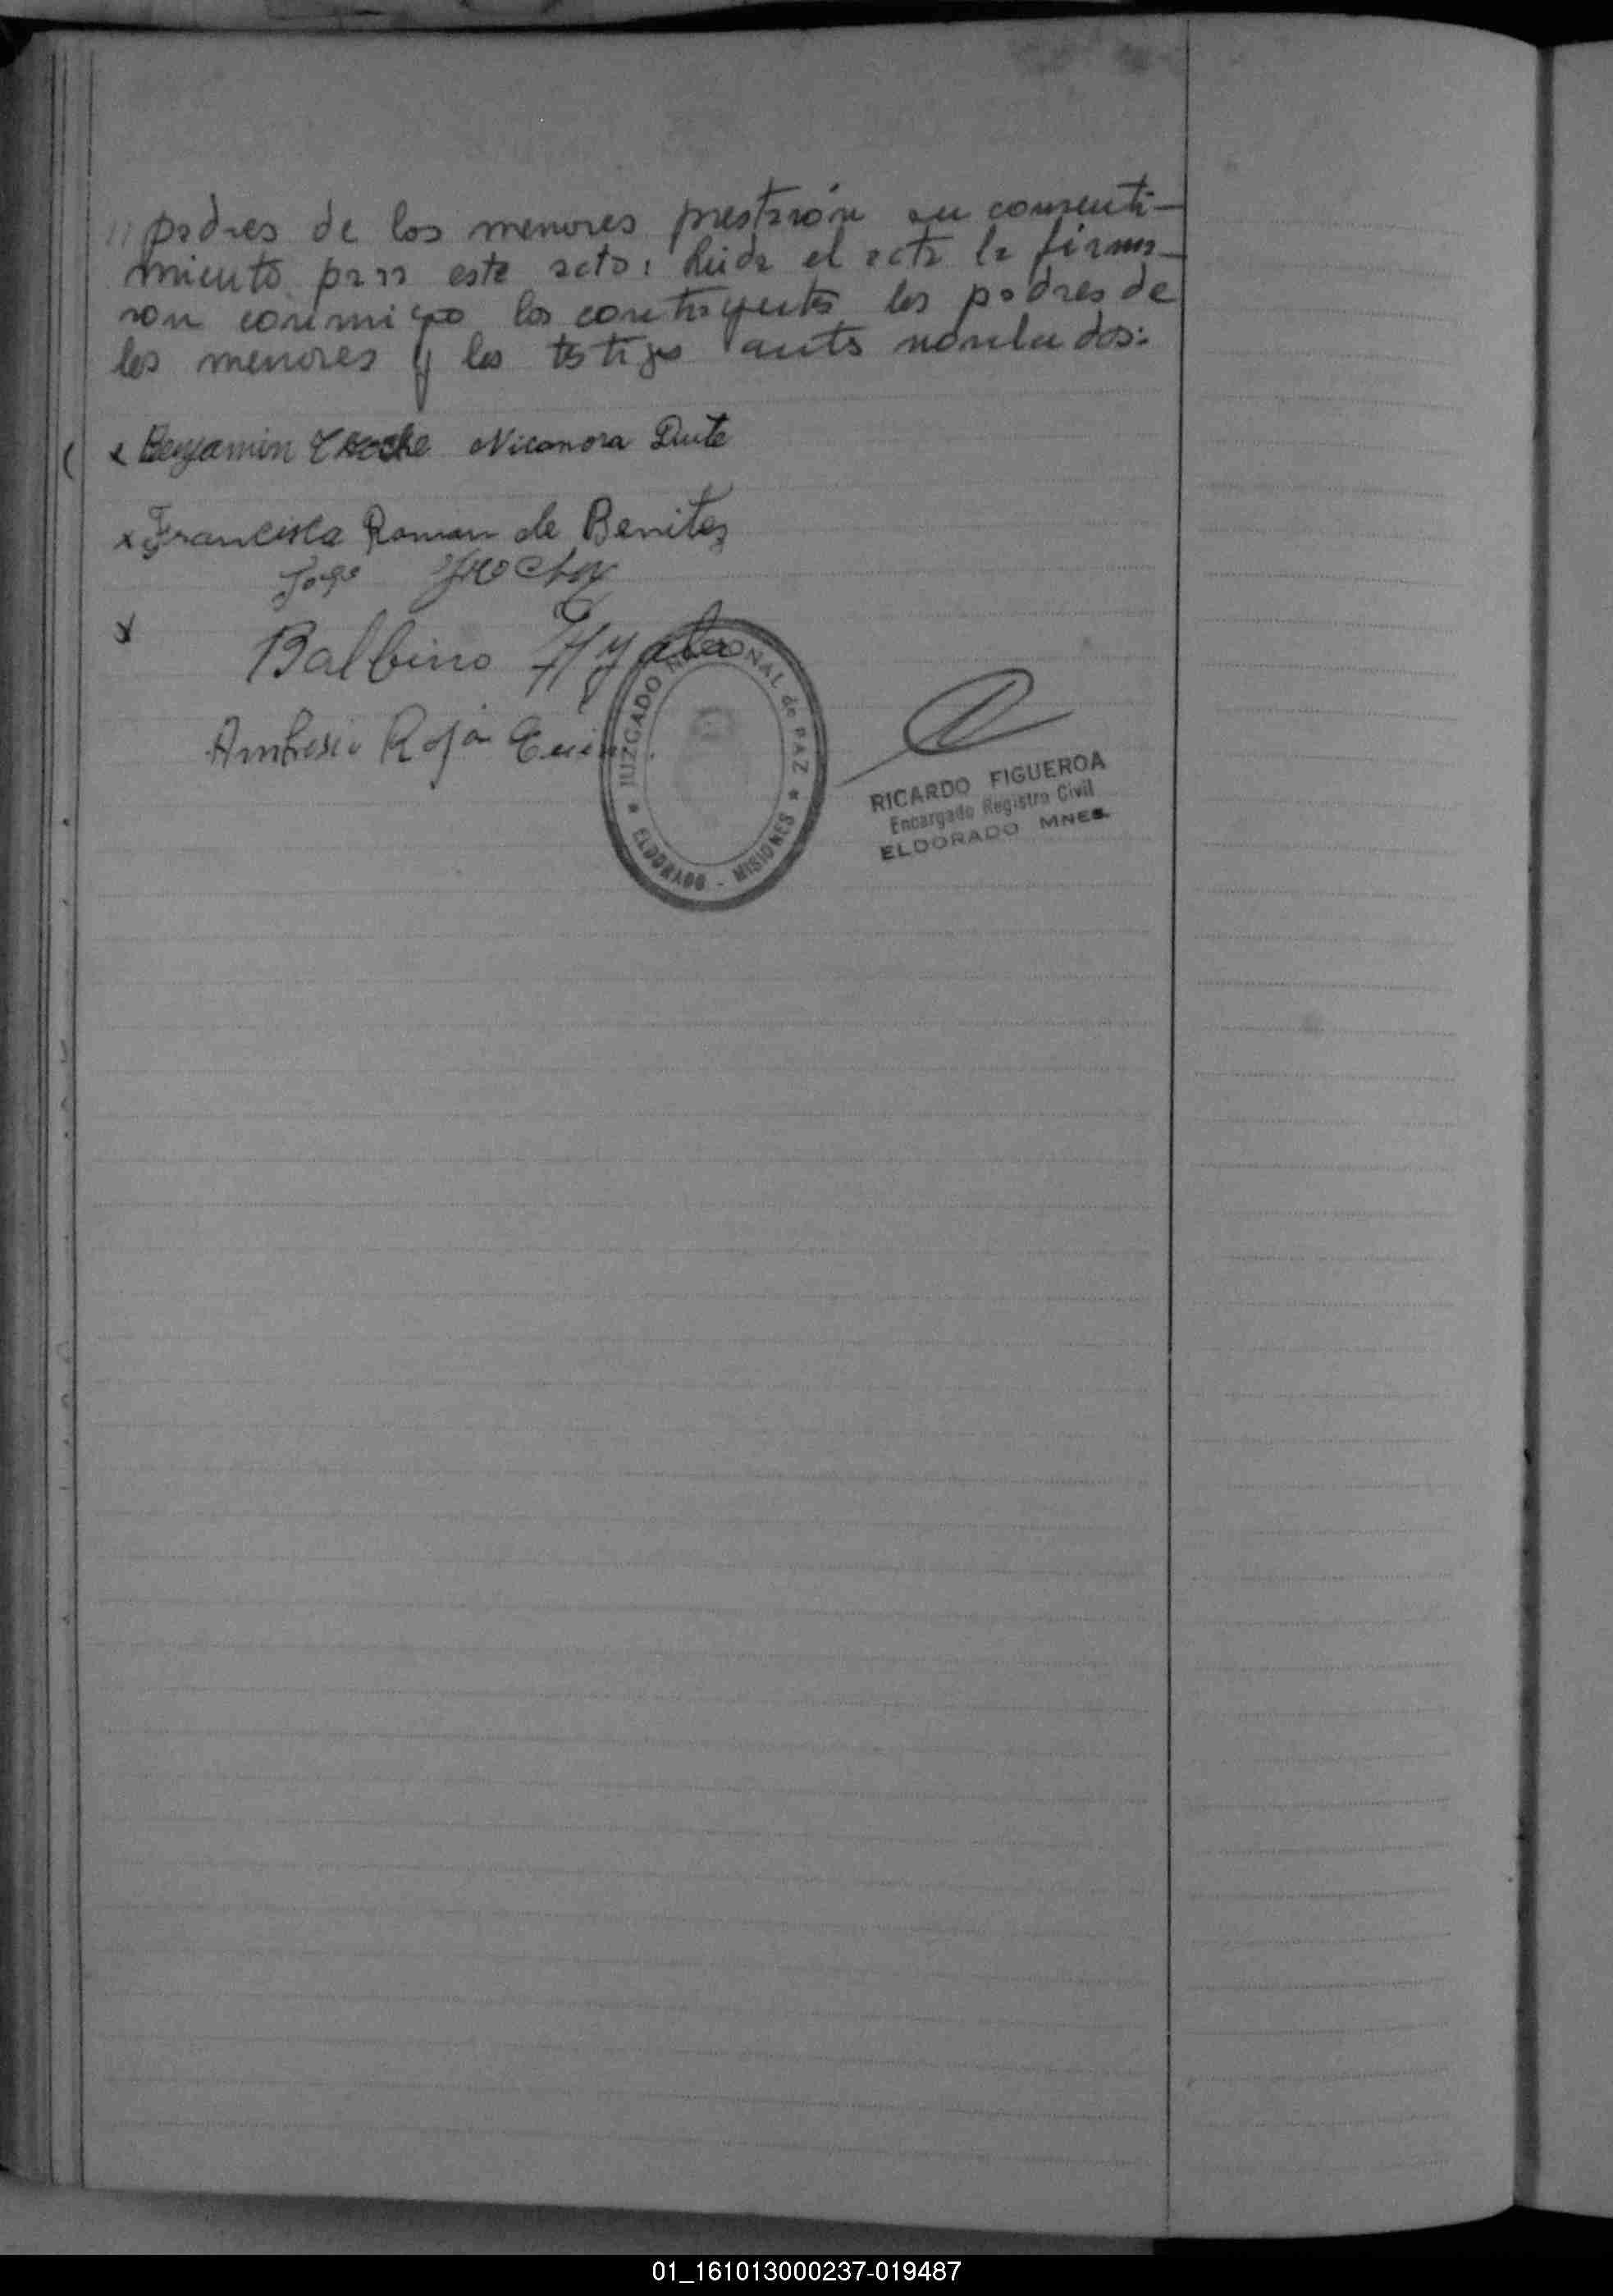 // padres de los menores prestarón su consenti-
miento para este acto: Leida el acta la firma-
ron conmigo los contrayentes los padres de
los menores y los testigos antes nonbrados:
x Benjamin Nicanora Dute
x Francisca Roman de Benitez
Jose
x
Balbino Ayala
Ambrosio Rojas
JUZGADO NACIONAL de PAZ
* ELDORADO - MISIONES *
RICARDO FIGUEROA
Encargado Registro Civil
ELDORADO MNES.
01_161013000237-019487